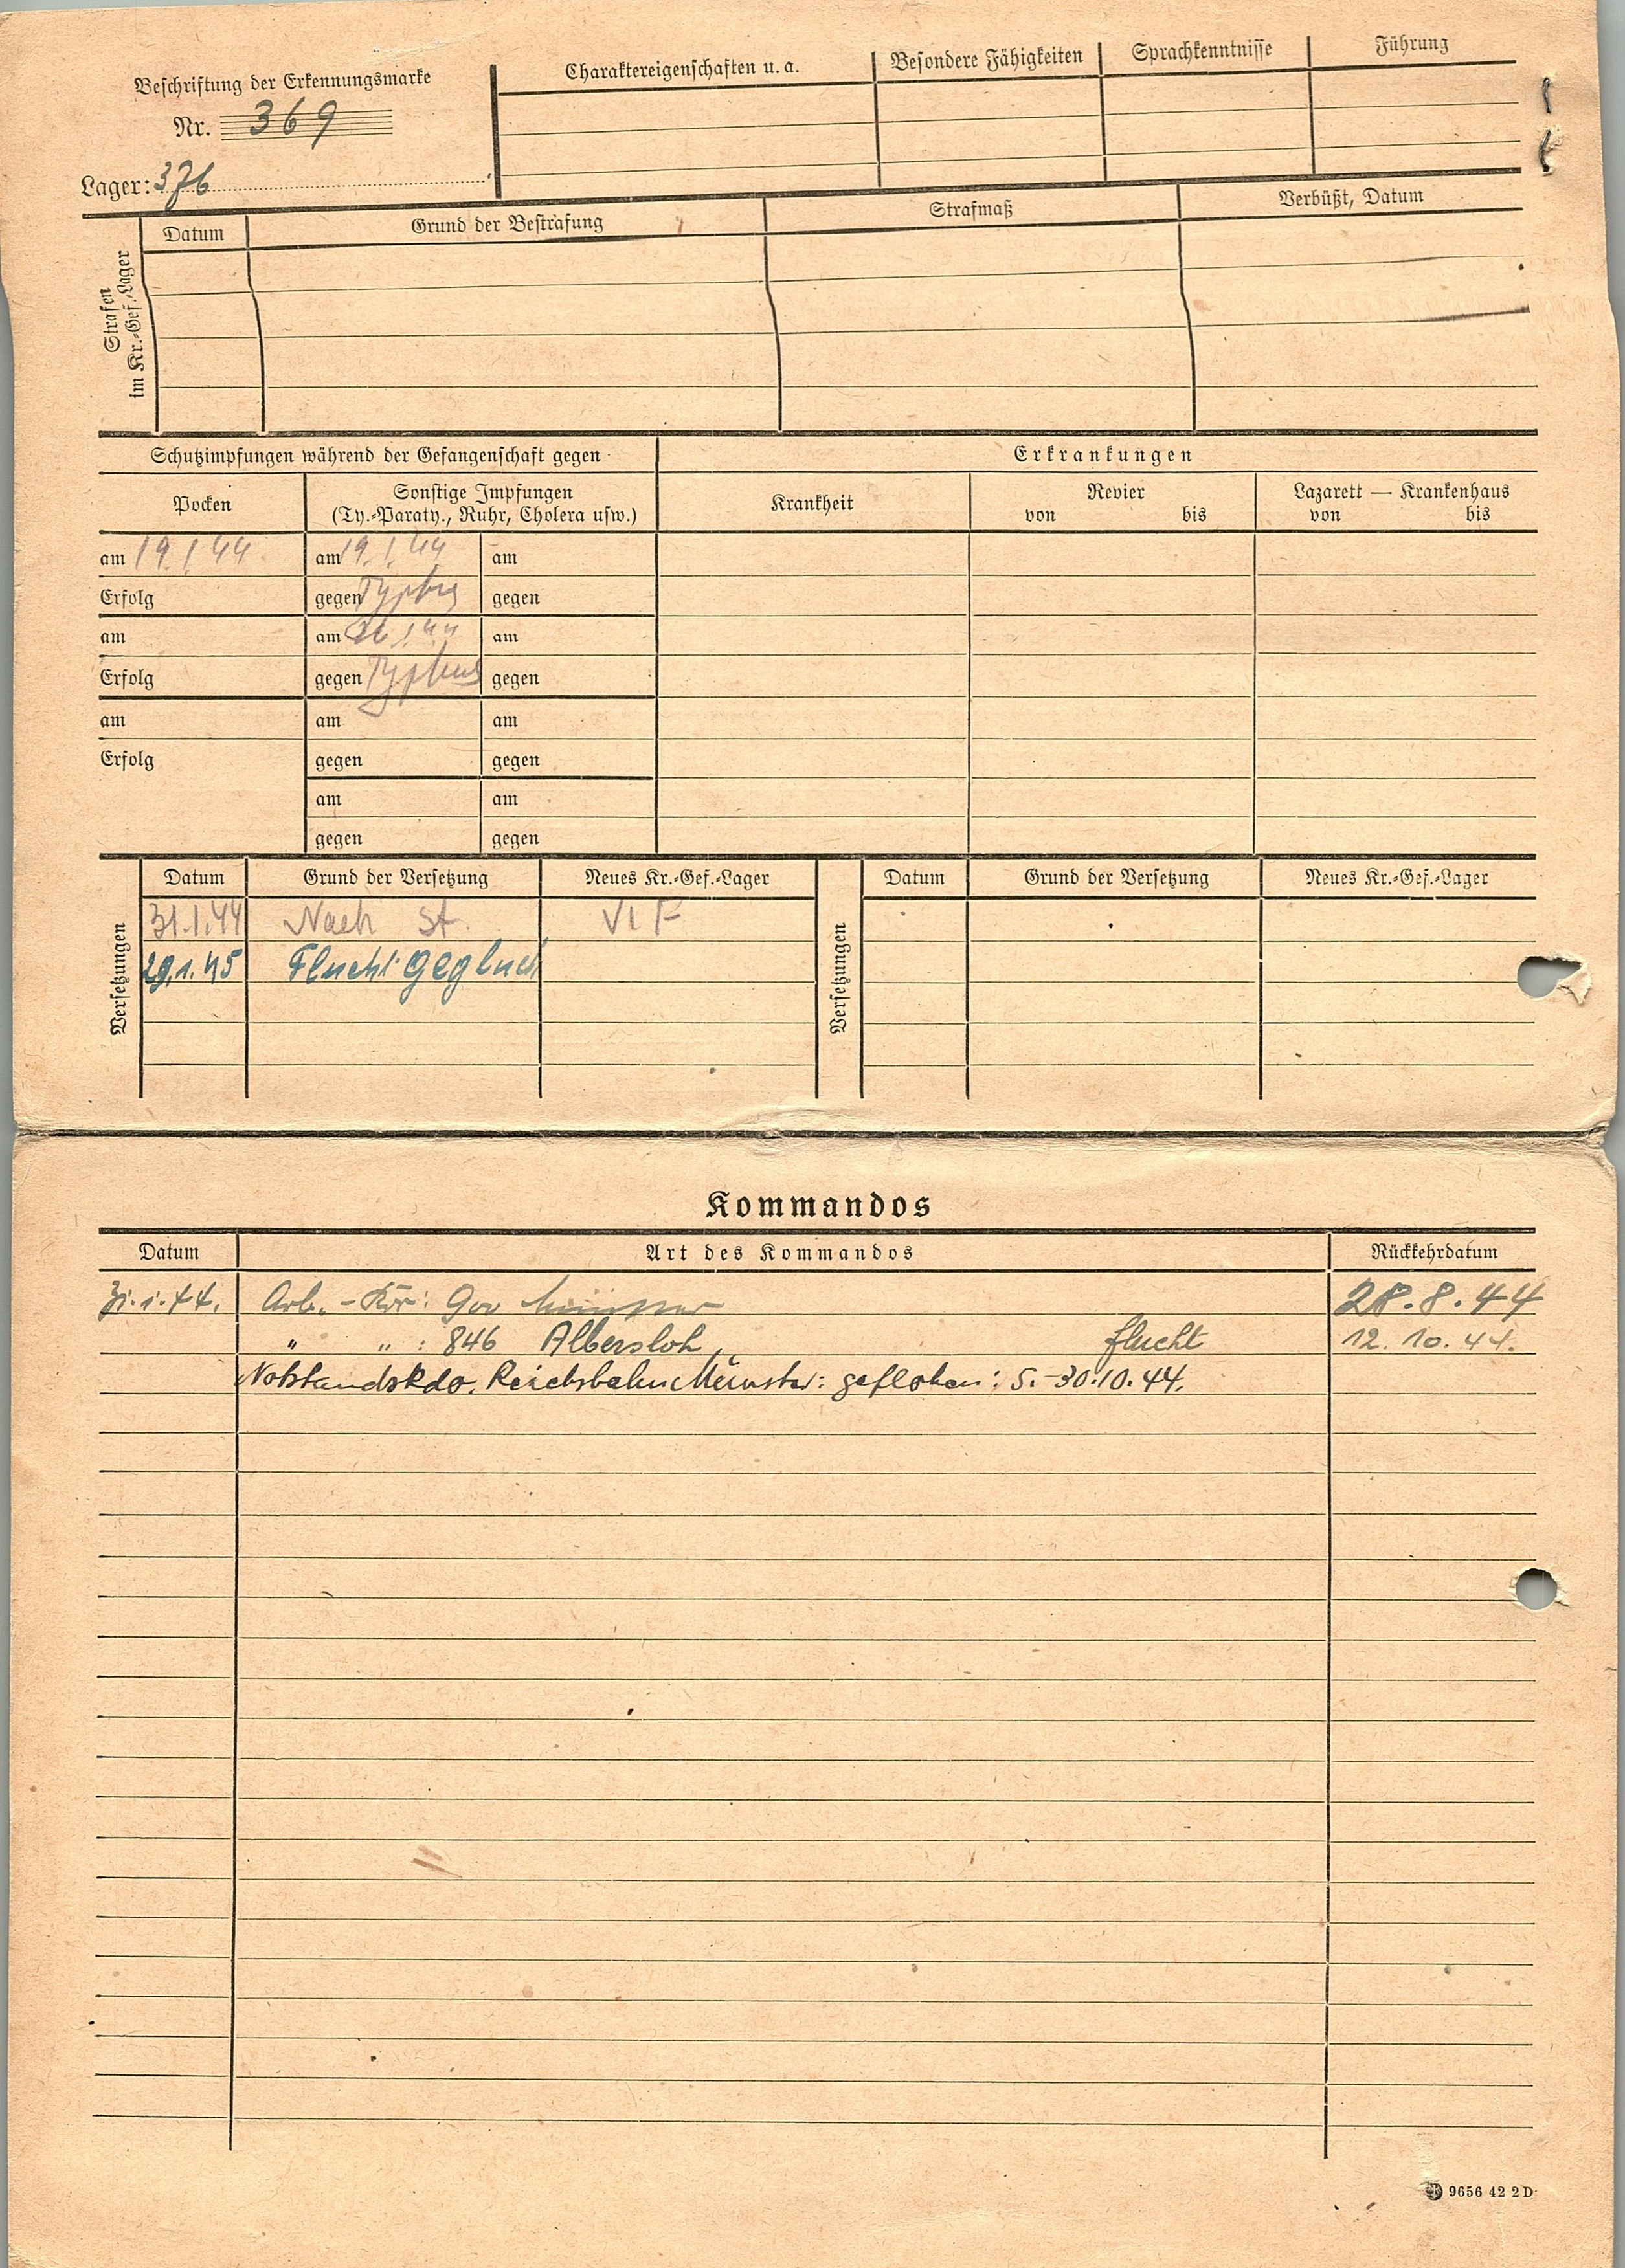 Beschriftung der Erkennungsmarke
Nr. 369
Lager: 376
Charaktereigenschaften u. a.
Besondere Fähigkeiten
Sprachkenntnisse
Führung
Strafen
im Kr.-Gef.-Lager
Datum
Grund der Bestrafung
Strafmaß
Verbüßt, Datum
Schutzimpfungen während der Gefangenschaft gegen
Erkrankungen
Pocken
Sonstige Impfungen
(Ty.-Paraty., Ruhr, Cholera usw.)
Krankheit
Revier
von bis
Lazarett — Krankenhaus
von bis
am 19.1.44 am 19.1.44 am
Erfolg gegen Typhus gegen
am am 26.1.44 am
Erfolg gegen Typhus gegen
am am am
Erfolg gegen gegen
am am
gegen gegen
Versetzungen
Datum Grund der Versetzung Neues Kr.-Gef.-Lager
31.1.44 Nach St. VI F
29.1.45 Flucht geglückt
Versetzungen
Datum Grund der Versetzung Neues Kr.-Gef.-Lager
Kommandos
Datum Art des Kommandos Rückkehrdatum
31.1.44. Arb.-Kdo: 900 Münster 28.8.44
" " : 846 Albersloh, flucht 12.10.44.
NotstandsKdo. Reichsbahn Münster: geflohen: 5.-30.10.44.
9656 42 2 D